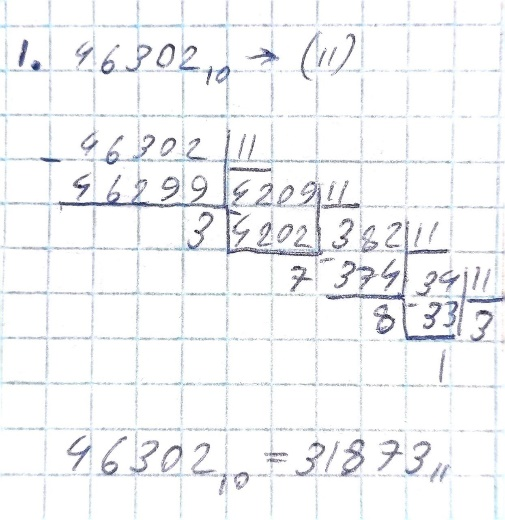 1. 46302₁₀ → (11)
- 46302 | 11
46299 | 4209 | 11
3 - 4202 | 382 | 11
7 - 374 | 34 | 11
8 - 33 | 3
1
46302₁₀ = 31873₁₁